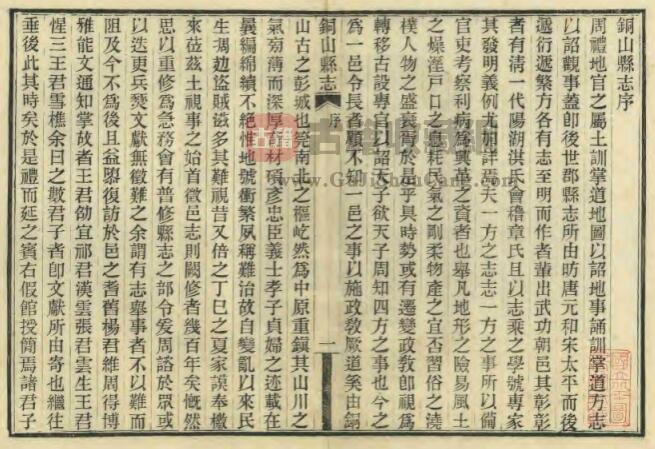 銅山縣志序
周禮地官之屬土訓掌道地圖以詔地事誦訓掌道方志
以詔觀事蓋卽後世郡縣志所由昉唐元和宋太平而後
遞衍遞繁方各有志至明而作者輩出武功朝邑其彰彰
者有清一代陽湖淇
會稽章氏且以志乘之學號專家
其發明義例尤
詳
夫一方之志志一方之事所以備
官吏考察利病
興革之資者也舉凡地形之險易風土
之燥溼戶口之息耗民氣之剛柔物產之宜否習俗之澆
樸人物之盛衰胥於是乎具時勢或有遷變政敎卽視爲
轉移古設專官以詔天子欲天子周知四方之事也今之
爲一邑令長者顧不知一邑之事以施政敎厥道奚由銅
銅山縣志 序 一
山古之彭城也筦南北之樞屹然爲中原重鎭其山川之
氣旁薄而深厚
材碩彥忠臣義士孝子貞婦之迹載在
曩編綿續不絶惟地號衝繁夙稱難治故自變亂以來民
生凋攰盜賊滋多其難視昔又倍之丁巳之夏家謨奉檄
來莅茲土視事之始首徵邑志則闕修者幾百年矣慨然
思以重修爲急務會有普修縣志之部令爰周諮於眾或
以迭更兵燹文獻無徵難之余謂有志舉事者不以難而
阻及今不爲後且益
復訪於邑之耆舊楊君維周得博
雅能文通知掌故者王君劭宜祁君漢雲張君雲生王君
惺三王君雪樵余曰之數君子者卽文獻所由寄也繼往
垂後此其時矣於是禮而延之賓右假館授簡焉諸君子
古籍
www.GuJiShuCang.com